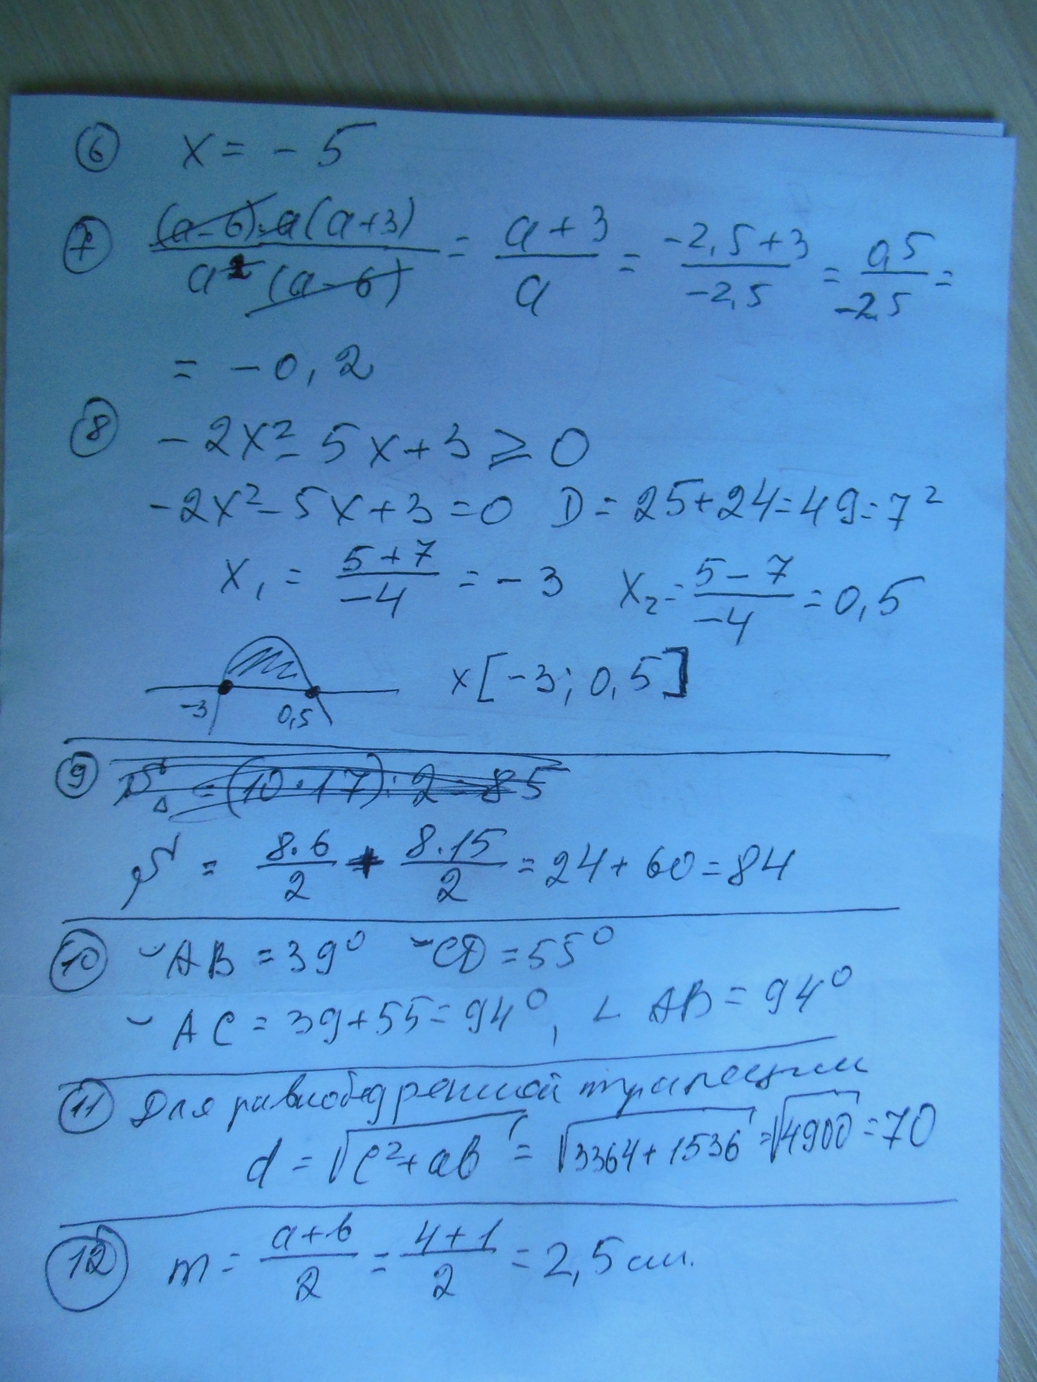 ⑥ x = - 5
⑦ (a-6)·a(a+3) / a²(a-6) = a+3 / a = -2,5+3 / -2,5 = 0,5 / -2,5 =
= - 0, 2
⑧ - 2x² - 5x + 3 ⩾ 0
-2x² - 5x + 3 = 0 D = 25+24=49=7²
x₁ = 5+7 / -4 = - 3 x₂ = 5-7 / -4 = 0,5
-3 0,5 x [-3; 0,5]
⑨ S△ = (10·17):2=85
S = 8·6 / 2 + 8·15 / 2 = 24+60=84
⑩ ◡AB = 39° ◡CD = 55°
◡AC = 39+55=94°, ∠ AB = 94°
⑪ Для равнобедренной трапеции
d = √c²+ab = √3364+1536 = √4900 = 70
⑫ m = a+b / 2 = 4+1 / 2 = 2,5 см.